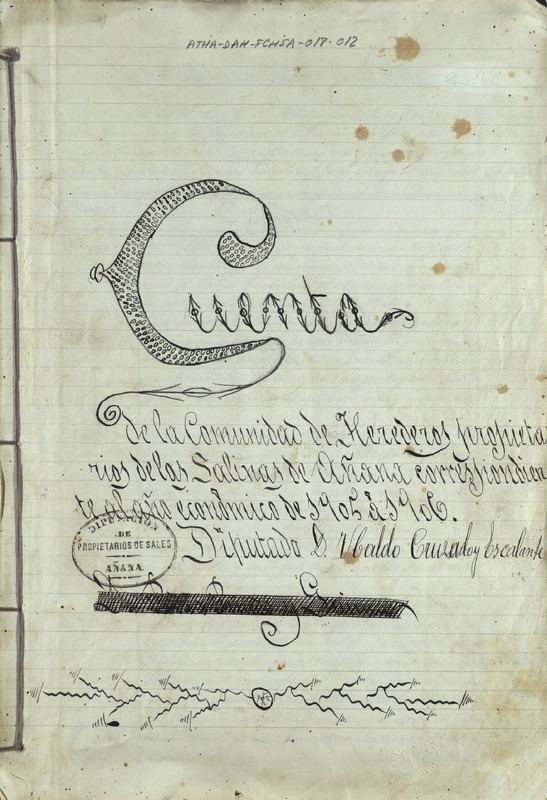 ATHA-DAH-FCHSA-017-012
Cuenta
de la Comunidad de Herederos propieta
rios de las Salinas de Añana correspondien
te al año económico de 1905 á 1906.
DIPUTACIÓN
DE
PROPIETARIOS DE SALES
AÑANA.
Diputado D. Ubaldo Cruzado y Escalante